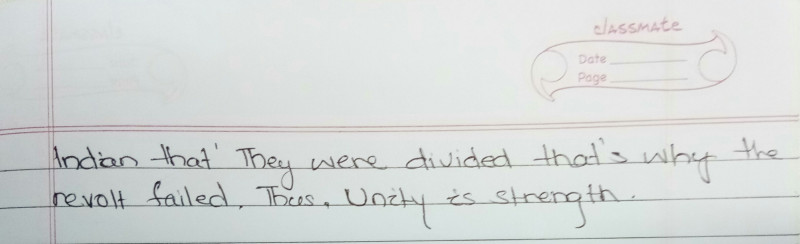 classmate
Date
Page
Indian that' They were divided that's why the
revolt failed. Thus, Unity is strength.